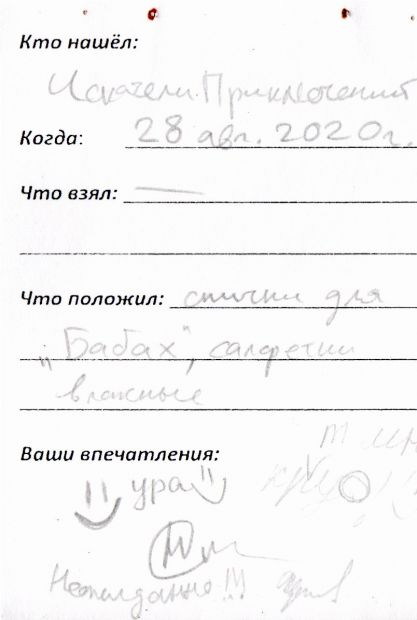 Кто нашёл:
Искатели Приключений
Когда: 28 авг. 2020г.
Что взял: —
Что положил: спички для
"Бабах", салфетки
влажные
Ваши впечатления:
ура!!
Неожиданно!!!